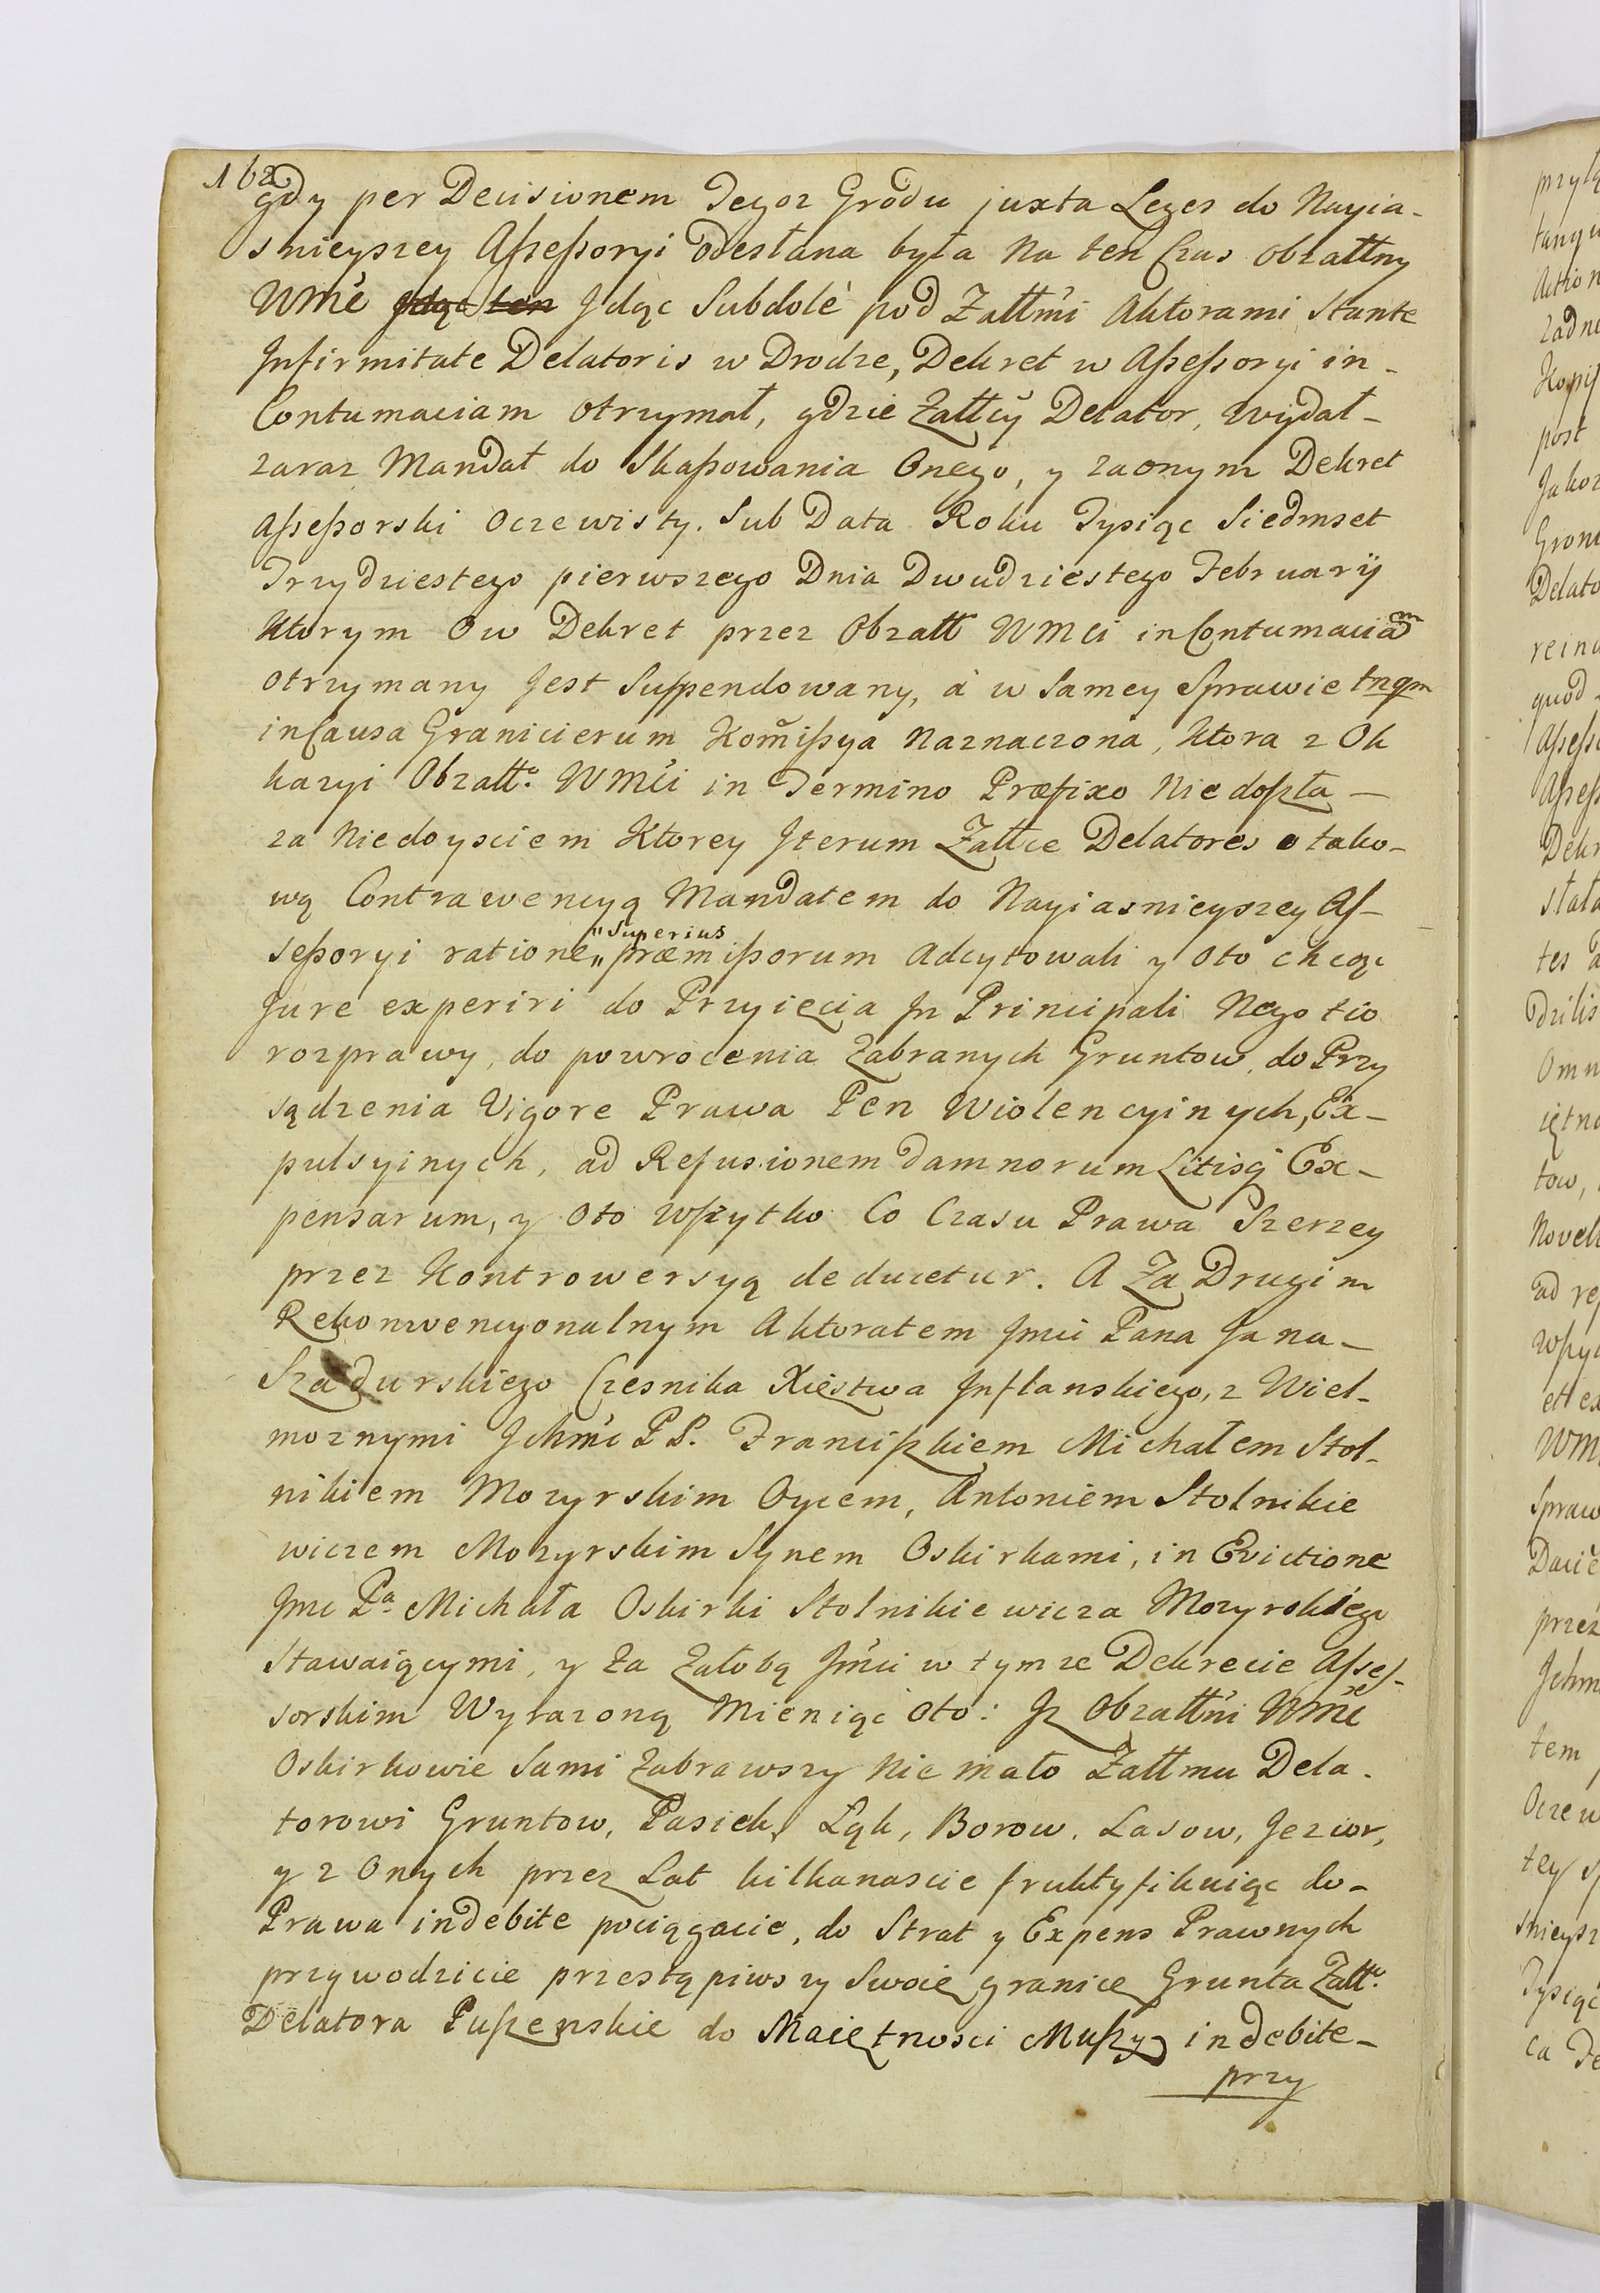 162
gdy per Decisionem Tegoz Grodu juxta Leges do Nayia-
snieyszey Assessoryi odesłana była Na ten Czas obzałtny
WMć Jdąc ten Jdąc Subdolè pod Załtmi Aktorami Stante
Jnfirmitate Delatoris w Drodze, Dekret w Assessoryi in-
Contumaciam otrzymał, gdzie Załtcy Delator, wydał-
zaraz Mandat do Skassowania Onego, y zaonym Dekret
Assessorski Oczewisty. Sub Data Roku Tysiąc Siedmset
Trzydziestego pierwszego Dnia Dwudziestego Februarÿ
Ktorym Ow Dekret przez Obzałt WMCi in Contumaciam
otrzymany Jest Suspendowany, à w Samey Sprawie tnqm
in Causa Granicierum Kom̃issya Naznaczona, Ktora z Ok
kazyi Obzałtº WMći in Termino Præfixo Niedoszła —
za Niedoysciem Ktorey Jterum Załtce Delatores o tako-
wą Contrawencyą Mandatem do Nayiasnieyszey As-
sessoryi ratione „Superius„ præmissorum Adcytowali y Oto chcąc
Jure experiri do Przyięcia Jn Principali Negotio
rozprawy, do powrocenia Zabranych Gruntow, do Przy
sądzenia Vigore Prawa Pen Wiolencyinych, Ex-
pulsyinych, ad Refusionem damnorum Litisq Ex-
pensarum, y Oto wszytko Co Czasu Prawa Szerzey
przez Kontrowersyą deducetur. A Za Drugim
Rekonwencyonalnym Aktoratem Jmci Pana Jana-
Szadurskiego Czesnika Xięstwa Jnflanskiego, z Wiel-
moznymi Jchmć PP. Franciszkiem Michałem Stol-
nikiem Mozyrskim Oycem, Antoniem Stolnikie
wiczem Mozyrskim Synem Oskirkami, in Evictione
Jmc Pª Michała Oskirki Stolnikiewicza Mozyrskiego
Stawaiącymi, y Za Załobą Jmći w tymze Dekrecie Asses-
sorskim Wyrazoną Mieniąc Oto: Jz Obzałtni WMć
Oskirkowie Sami Zabrawszy Nie mało Załtmu Dela-
torowi Gruntow, Pasiek, Łąk, Borow, Lasow, Jezior,
y z Onych przez Lat kilkanascie fruktyfikuiąc do-
Prawa indebite pociągacie, do Strat y Expens Prawnych
przywodzicie przestąpiwszy Swoie granice Grunta Załtº
Delatora Puszenskie do Maiętnosci Muszy indebite-
przy